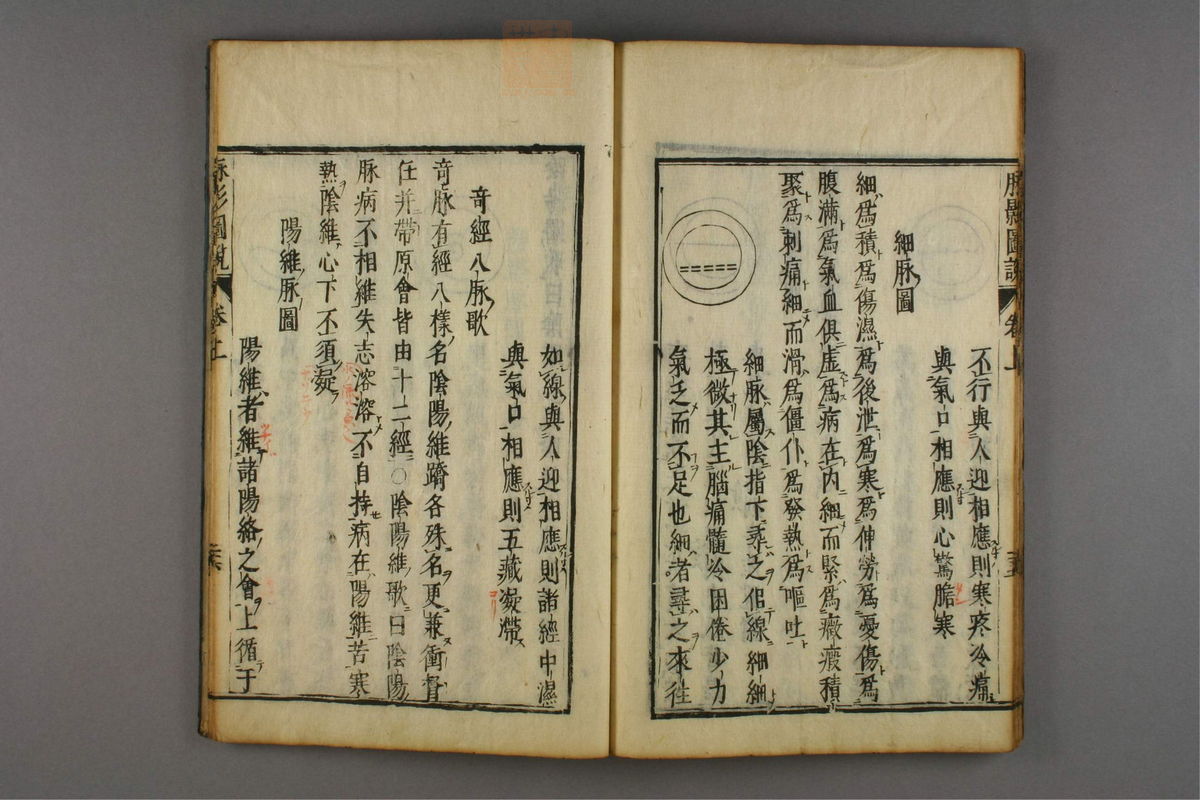 脉影圖説 卷上
不行與人迎相應則寒疼冷痛
與氣口相應則心驚膽寒
細脉圖
細爲積爲傷濕爲後泄爲寒爲伸勞爲憂傷爲
腹滿爲氣血俱虛爲病在内細而緊爲癥瘕積
聚爲刺痛細而滑爲僵仆爲發熱爲嘔吐
細脉屬陰指下尋之㑋線細細
極微其主腦痛髓冷困倦少力
氣乏而不足也細者尋之來徃
如線與人迎相應則諸經中濕
與氣口相應則五藏凝滯
奇經八脉歌
奇脉有經八樣名陰陽維蹻各殊名更兼衝督
任并帶原會皆由十二經〇陰陽維歌曰陰陽
脉病不相維失志溶溶不自持病在陽維苦寒
熱陰維心下不須凝
陽維脉圖
陽維者維諸陽絡之會上循于
脉影圖説 卷上